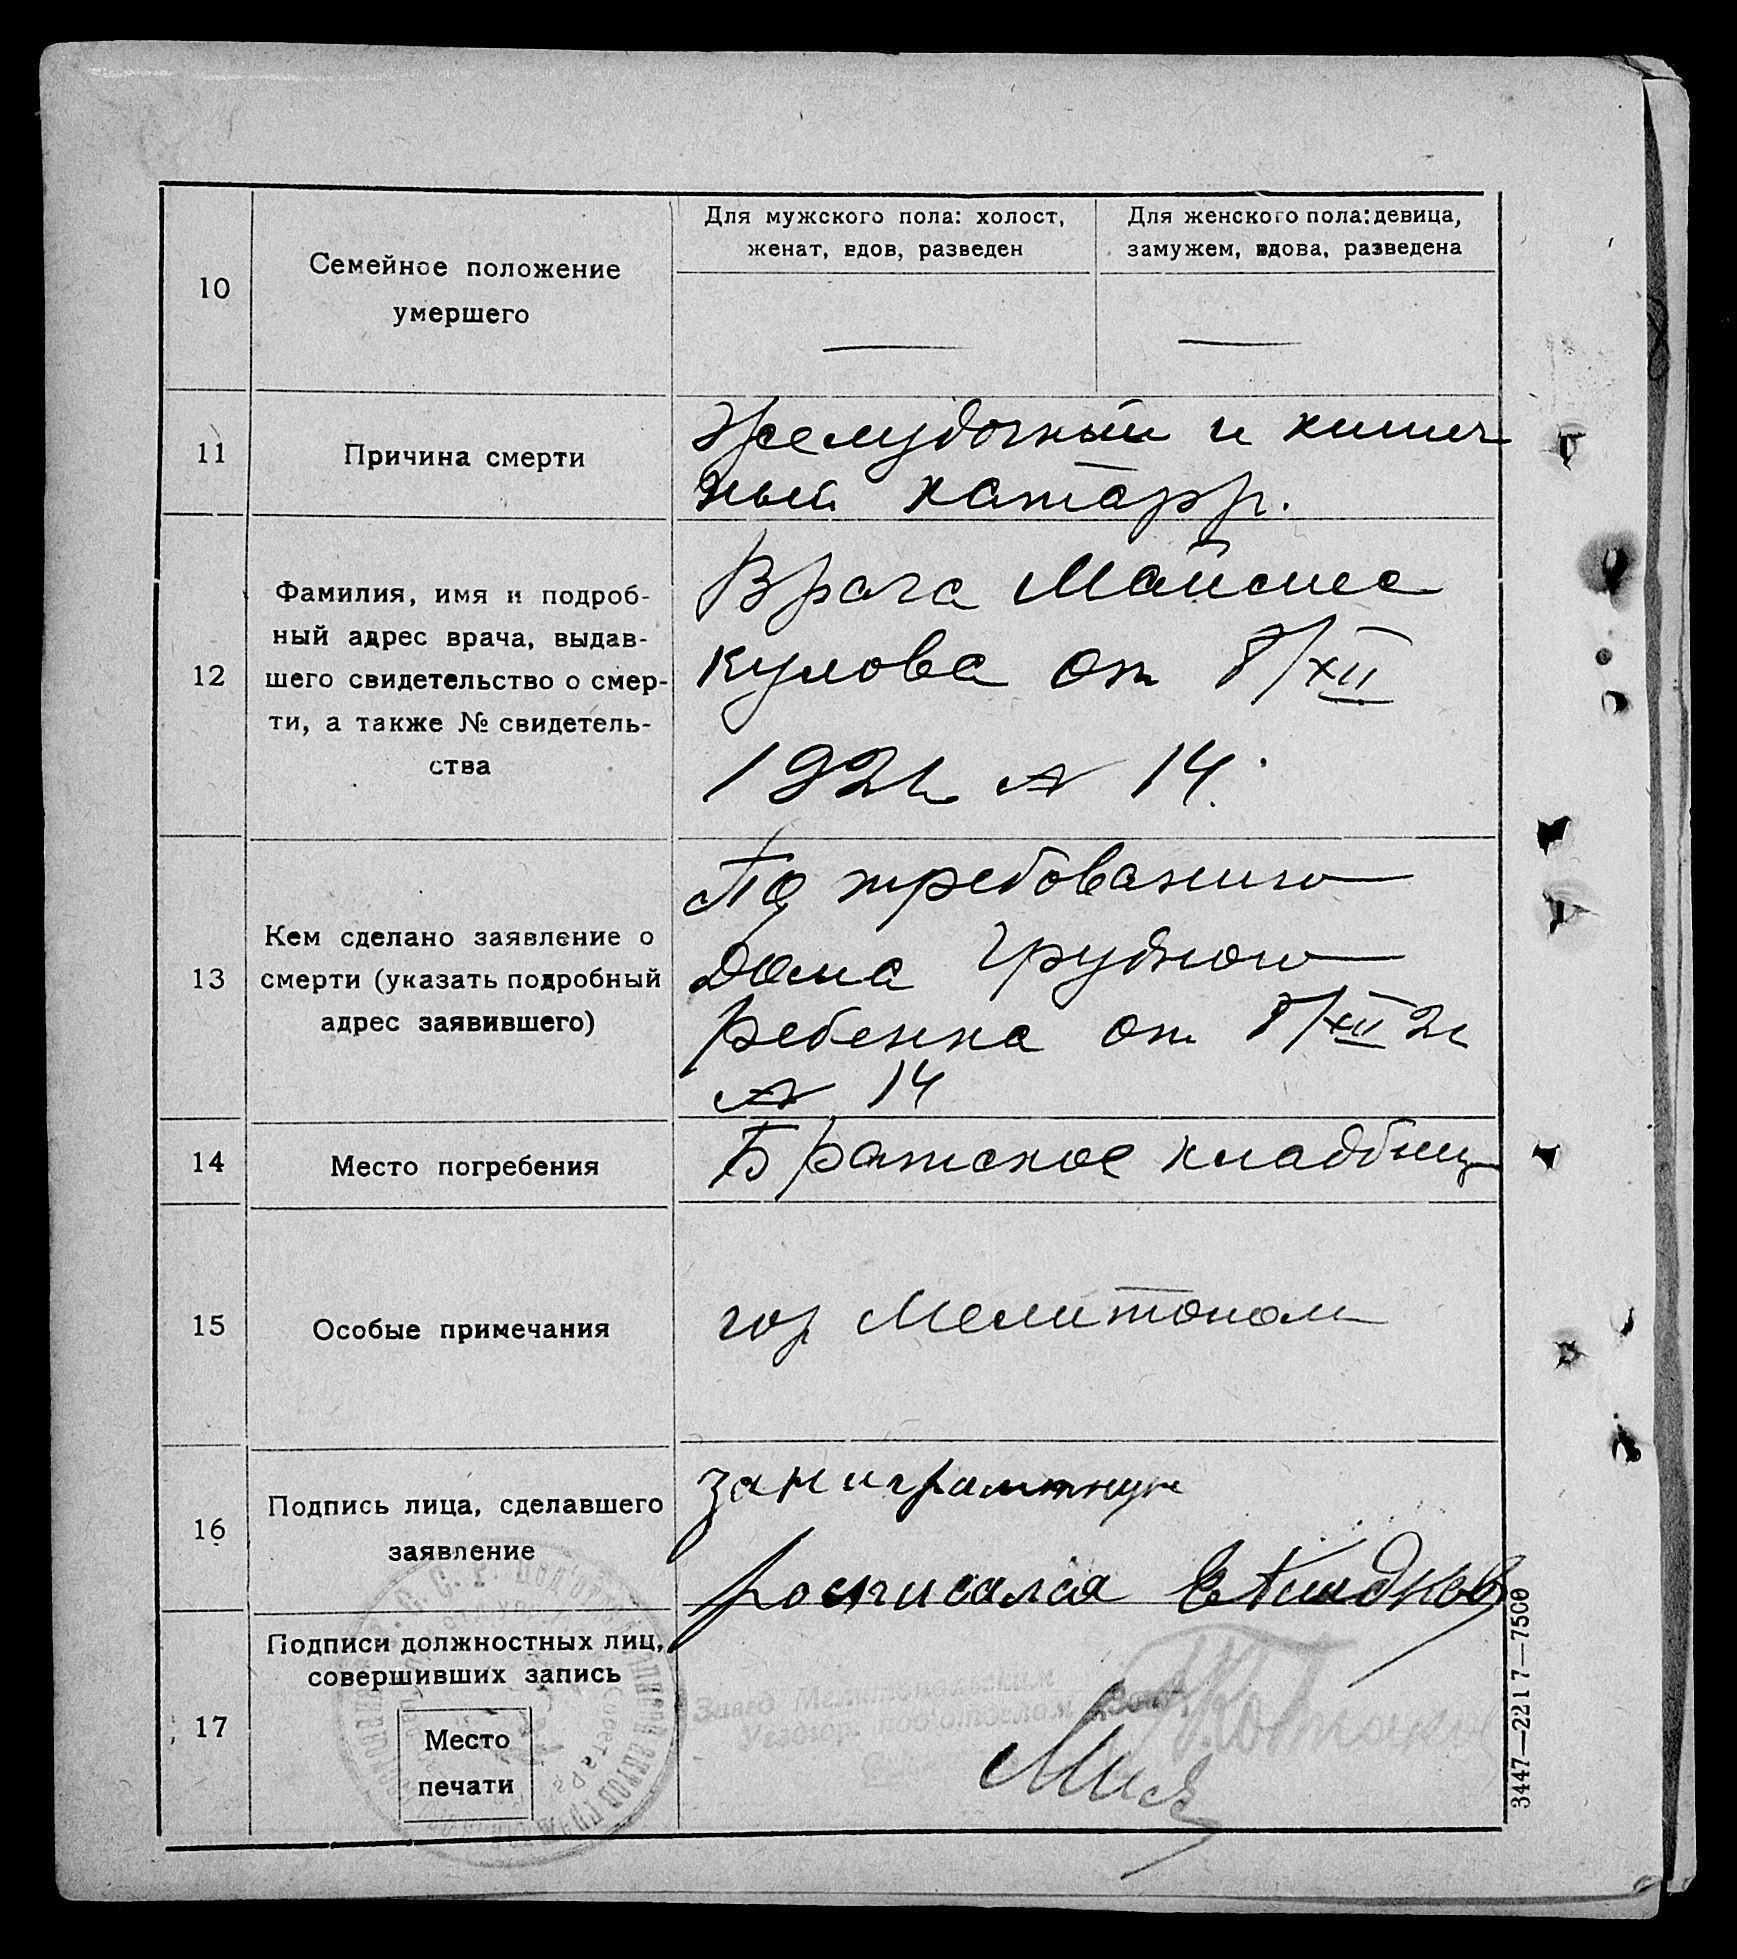 10
Семейное положение
умершего
Для мужского пола: холост,
женат, вдов, разведен
Для женского пола: девица,
замужем, вдова, разведена
11
Причина смерти
Желудочный и кишеч
ный катарр.
12
Фамилия, имя и подроб-
ный адрес врача, выдав-
шего свидетельство о смер-
ти, а также № свидетель-
ства
Врача
от 8/XII
192 № 14.
13
Кем сделано заявление о
смерти (указать подробный
адрес заявившего)
По требованию
Дома Грудного
Ребенка от 8/XII 2
№ 14
14
Место погребения
Братское кладбищ
15
Особые примечания
гор Мелитополь
16
Подпись лица, сделавшего
заявление
росписался
17
Подписи должностных лиц,
совершивших запись
Место
печати
Мелитопольским
3447—2217—7500